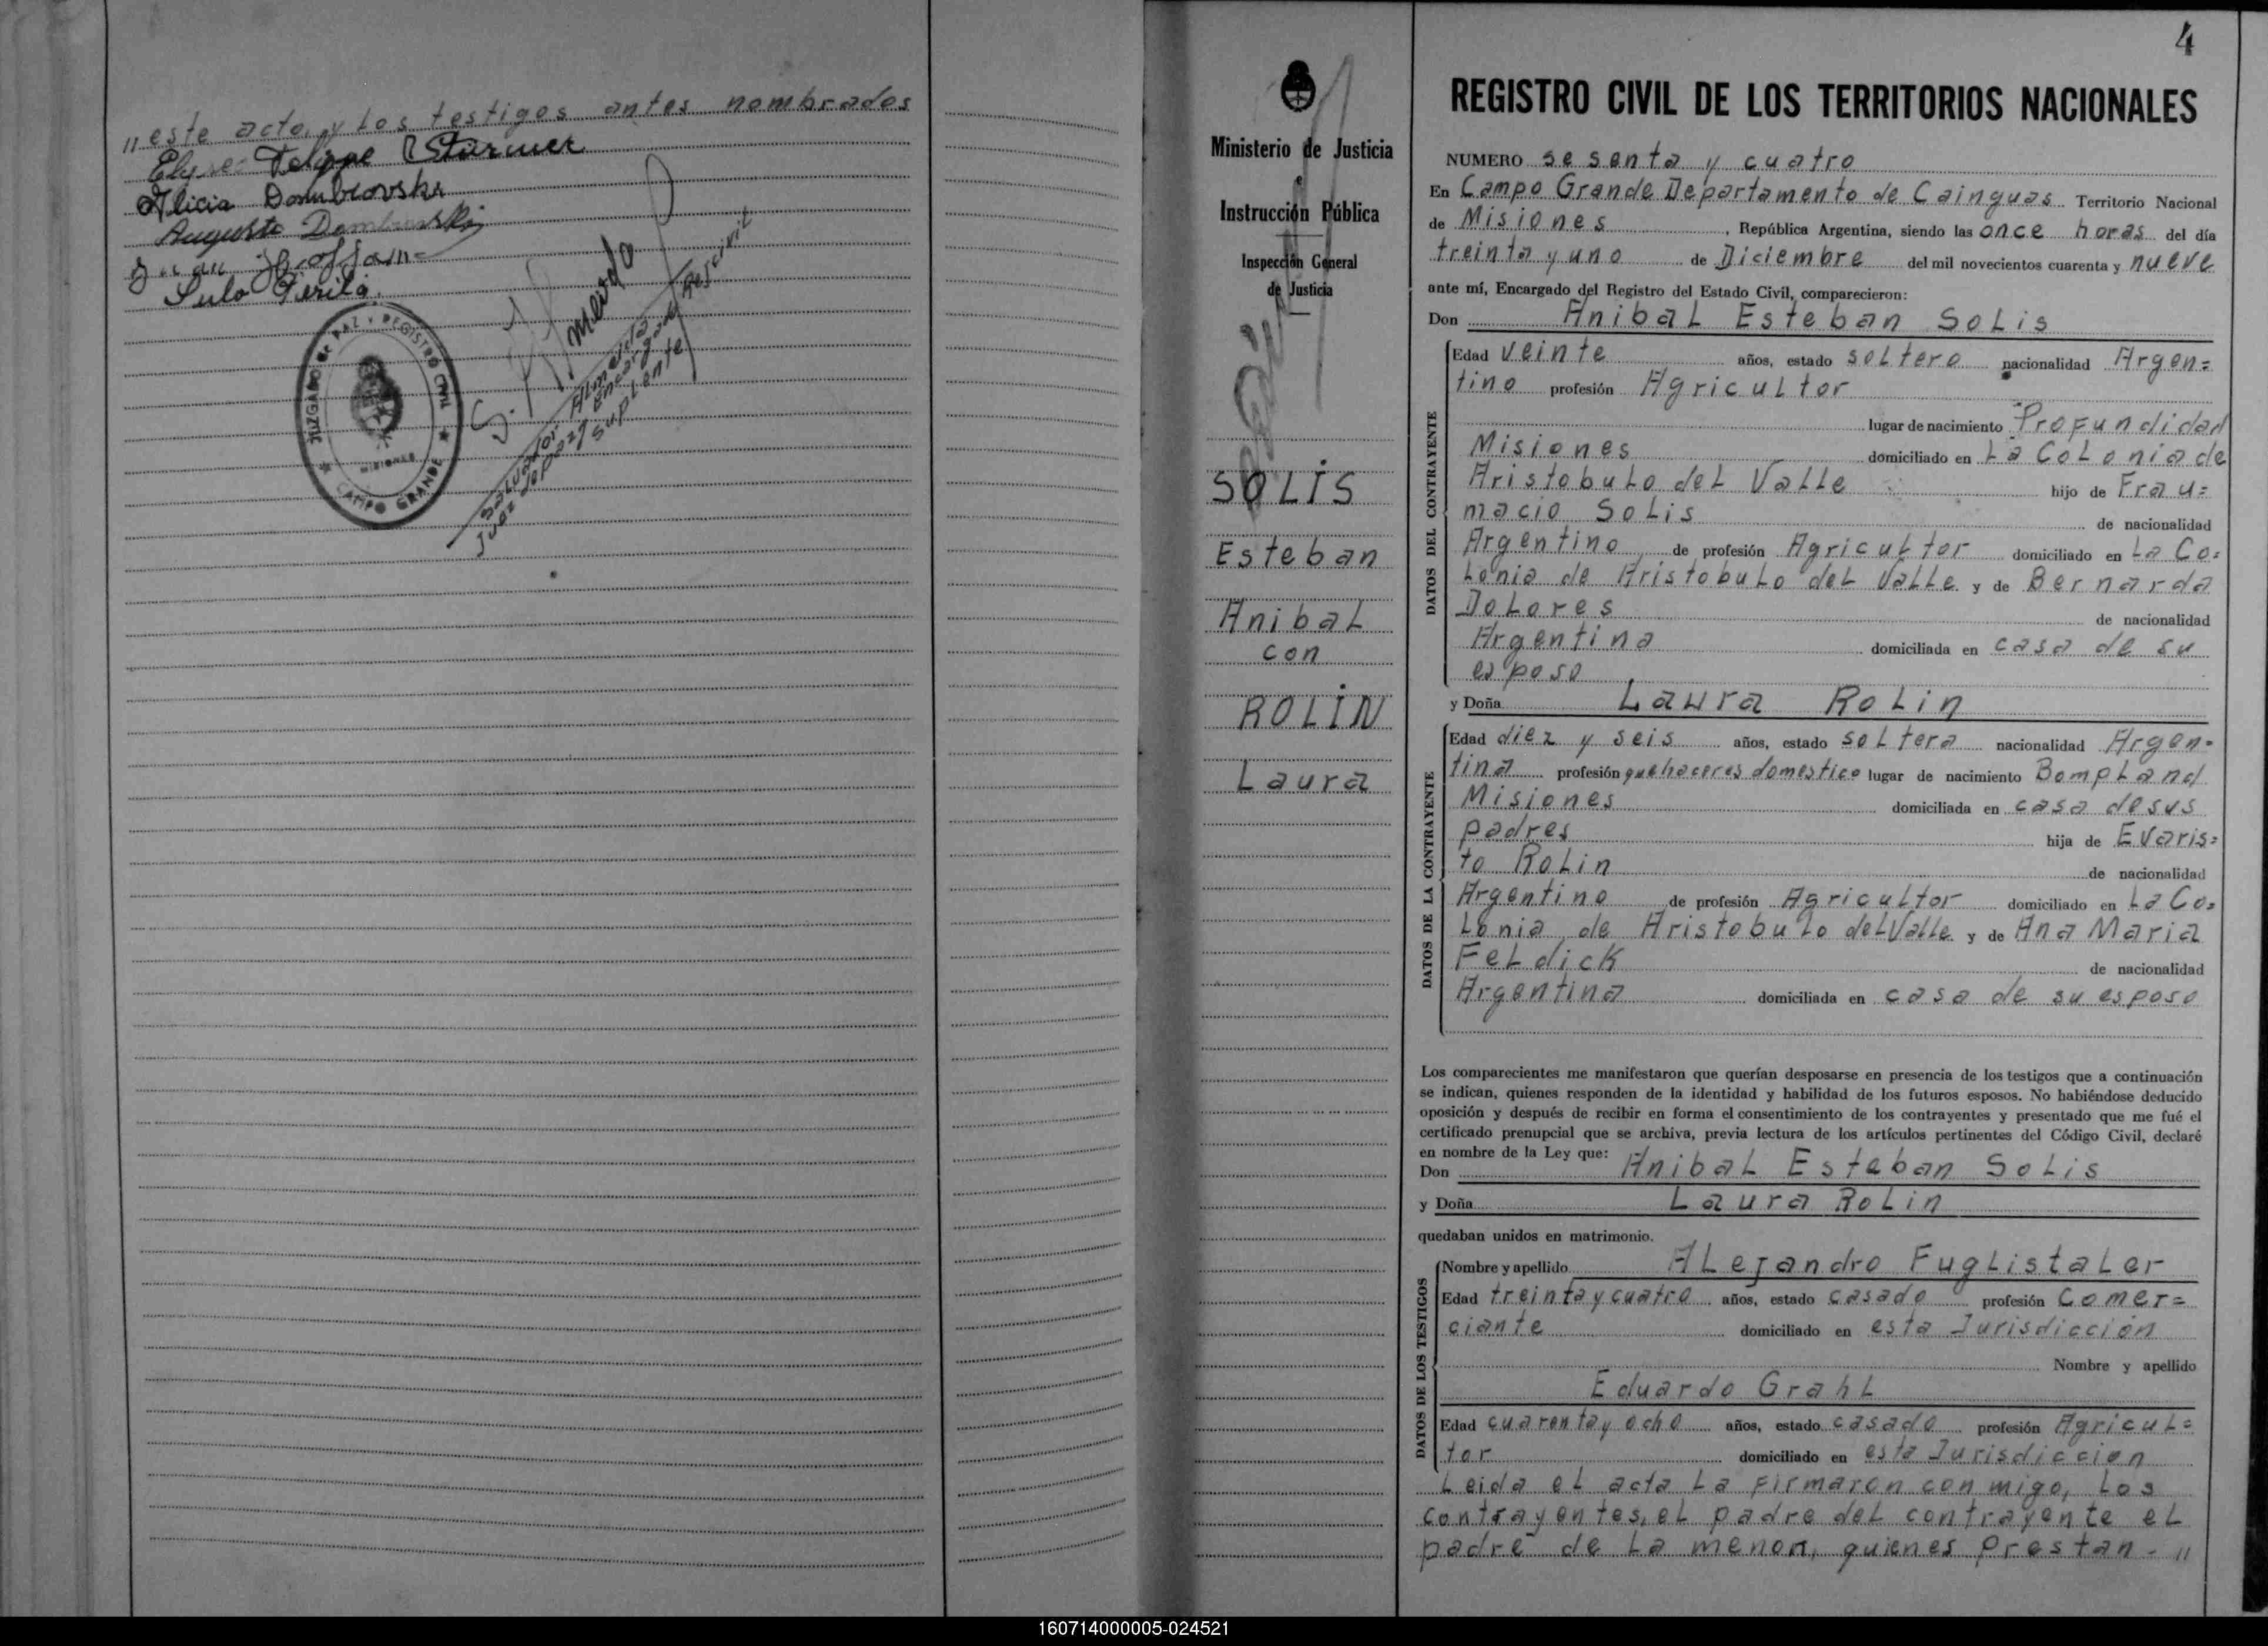 "este acto, y Los testigos antes nombrados
Felippe Stürmer
Alicia Dombrovski
Augusto Dombrowski
Juan
JUZGADO DE PAZ Y REGISTRO CIVIL
MISIONES
CAMPO GRANDE
S. Almeida
Salvador Almeida
Juez de paz y Encargado Reg. civil
suplente
Ministerio de Justicia
e
Instrucción Pública
Inspección General
de Justicia
SOLIS
Esteban
AnibaL
con
ROLIN
Laura
4
REGISTRO CIVIL DE LOS TERRITORIOS NACIONALES
NUMERO sesenta y cuatro
En Campo Grande Departamento de Cainguas Territorio Nacional
de Misiones, República Argentina, siendo las once horas del día
treinta y uno de Diciembre del mil novecientos cuarenta y nueve
ante mí, Encargado del Registro del Estado Civil, comparecieron:
Don AnibaL Esteban SoLis
DATOS DEL CONTRAYENTE
Edad veinte años, estado soLtero nacionalidad Argen=
tino profesión AgricuLtor
lugar de nacimiento Profundidad
Misiones domiciliado en La CoLonia de
AristobuLo deL VaLLe hijo de Frau=
macio SoLis de nacionalidad
Argentino de profesión AgricuLtor domiciliado en La Co=
Lonia de AristobuLo deL VaLLe y de Bernarda
DoLores de nacionalidad
Argentina domiciliada en casa de su
esposo
y Doña Laura RoLin
DATOS DE LA CONTRAYENTE
Edad diez y seis años, estado soLtera nacionalidad Argen=
tina profesión quehaceres domestico lugar de nacimiento BompLand
Misiones domiciliada en casa de sus
padres hija de Evaris=
to RoLin de nacionalidad
Argentino de profesión AgricuLtor domiciliado en La Co=
Lonia de AristobuLo deLVaLLe y de Ana Maria
FeLdick de nacionalidad
Argentina domiciliada en casa de su esposo
Los comparecientes me manifestaron que querían desposarse en presencia de los testigos que a continuación
se indican, quienes responden de la identidad y habilidad de los futuros esposos. No habiéndose deducido
oposición y después de recibir en forma el consentimiento de los contrayentes y presentado que me fué el
certificado prenupcial que se archiva, previa lectura de los artículos pertinentes del Código Civil, declaré
en nombre de la Ley que:
Don AnibaL Esteban SoLis
y Doña Laura RoLin
quedaban unidos en matrimonio.
DATOS DE LOS TESTIGOS
Nombre y apellido ALejandro FugListaLer
Edad treinta y cuatro años, estado casado profesión Comer=
ciante domiciliado en esta Jurisdicción
Nombre y apellido
Eduardo GrahL
Edad cuarenta y ocho años, estado casado profesión AgricuL=
tor domiciliado en esta Jurisdiccion
Leida eL acta La firmaron con migo, Los
contrayentes, eL padre deL contrayente eL
padre de La menor, quienes prestan - "
160714000005-024521